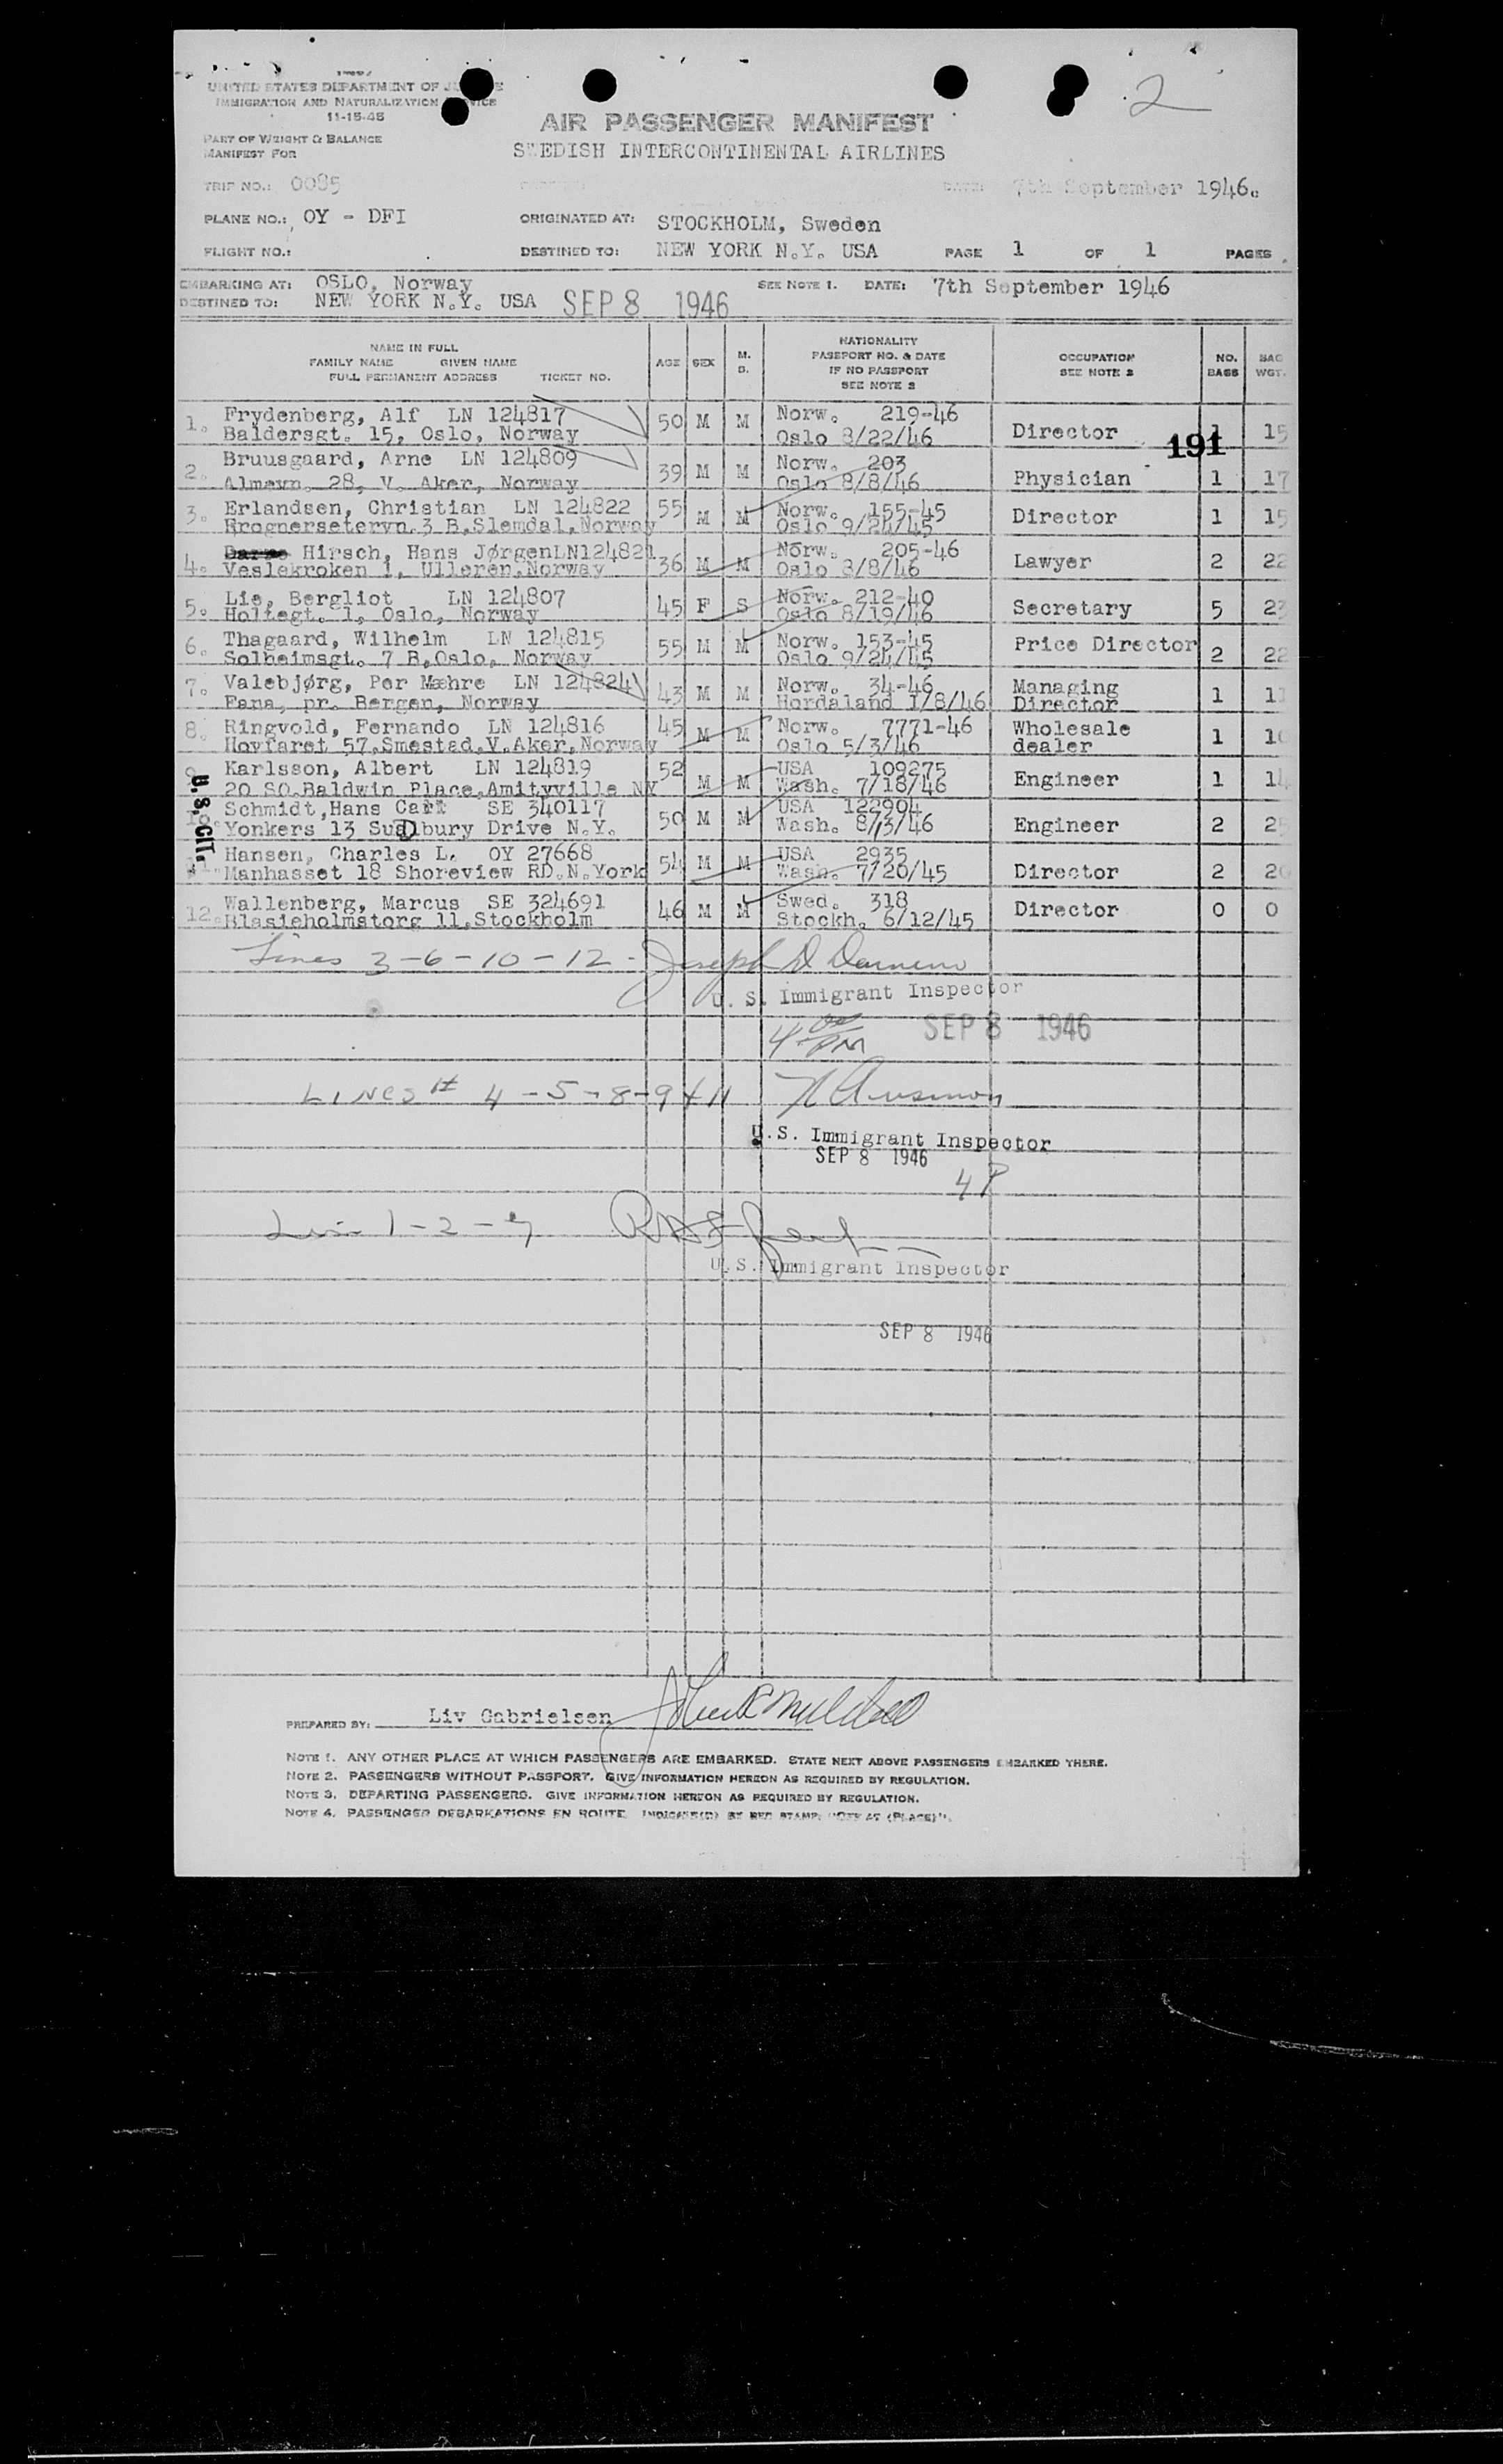 2
UNITED STATES DEPARTMENT OF
IMMIGRATION AND NATURALIZATION
PART OF WEIGHT & BALANCE
MANIFEST FOR
AIR PASSENGER MANIFEST
SWEDISH INTERCONTINENTAL AIRLINES
TRIP NO.: 0085 DATE: 7th September 1946.
PLANE NO.: OY - DFI ORIGINATED AT: STOCKHOLM, Sweden
FLIGHT NO.: DESTINED TO: NEW YORK N.Y. USA PAGE 1 OF 1 PAGES
EMBARKING AT: OSLO, Norway SEE NOTE 1. DATE: 7th September 1946
DESTINED TO: NEW YORK N.Y. USA SEP 8 1946
NAME IN FULL
FAMILY NAME GIVEN NAME
FULL PERMANENT ADDRESS TICKET NO.
AGE SEX M. S.
NATIONALITY
PASSPORT NO. & DATE
IF NO PASSPORT
SEE NOTE 2
OCCUPATION
SEE NOTE 2
NO. BAGS
BAG WGT.
1. Frydenberg, Alf LN 124817 50 M M Norw. 219-46
Baldersgt. 15, Oslo, Norway Oslo 8/22/46 Director 1 15
191
2. Bruusgaard, Arne LN 124809 39 M M Norw. 203
28, V. Aker, Norway Oslo 8/8/46 Physician 1 17
3. Erlandsen, Christian LN 124822 55 M M Norw. 155-45
3 B, Slemdal, Norway Oslo 9/24/45 Director 1 15
4. Hirsch, Hans JørgenLN124821 36 M M Norw. 205-46
Veslekroken 1, Ulleren, Norway Oslo 8/8/46 Lawyer 2 22
5. Lie, Bergliot LN 124807 45 F S Norw. 212-40
Holtegt. 1, Oslo, Norway Oslo 8/19/46 Secretary 5 23
6. Thagaard, Wilhelm LN 124815 55 M M Norw. 153-45 Price Director
Solheimsgt. 7 B, Oslo, Norway Oslo 9/24/45 2 22
7. Valebjørg, Per Mæhre LN 124824 43 M M Norw. 34-46 Managing
Fana, pr. Bergen, Norway Hordaland 1/8/46 Director 1 11
8. Ringvold, Fernando LN 124816 45 M M Norw. 7771-46 Wholesale
Hovfaret 57, Smestad, V. Aker, Norway Oslo 5/3/46 dealer 1 10
U.S. CIT.
9. Karlsson, Albert LN 124819 52 M M USA 109275
20 SO. Baldwin Place, Amityville NY Wash. 7/18/46 Engineer 1 14
10. Schmidt, Hans Carl SE 340117 50 M M USA 122904
Yonkers 13 Sudbury Drive N.Y. Wash. 8/13/46 Engineer 2 25
11. Hansen, Charles L. OY 27668 54 M M USA 2935
Manhasset 18 Shoreview RD. N. York Wash. 7/20/45 Director 2 20
12. Wallenberg, Marcus SE 324691 46 M M Swed. 318
Blasieholmstorg 11, Stockholm Stockh. 6/12/45 Director 0 0
Lines 3-6-10-12 - Joseph D
U. S. Immigrant Inspector
4 00 PM SEP 8 1946
LINES # 4-5-8-9 + 11
U.S. Immigrant Inspector
SEP 8 1946
4 P
1-2-7
U.S. Immigrant Inspector
SEP 8 1946
PREPARED BY: Liv Gabrielsen
NOTE 1. ANY OTHER PLACE AT WHICH PASSENGERS ARE EMBARKED. STATE NEXT ABOVE PASSENGERS EMBARKED THERE.
NOTE 2. PASSENGERS WITHOUT PASSPORT. GIVE INFORMATION HEREON AS REQUIRED BY REGULATION.
NOTE 3. DEPARTING PASSENGERS. GIVE INFORMATION HEREON AS REQUIRED BY REGULATION.
NOTE 4. PASSENGER DEBARKATIONS EN ROUTE INDICATE(D) BY RED STAMP: "OFF AT (PLACE)".